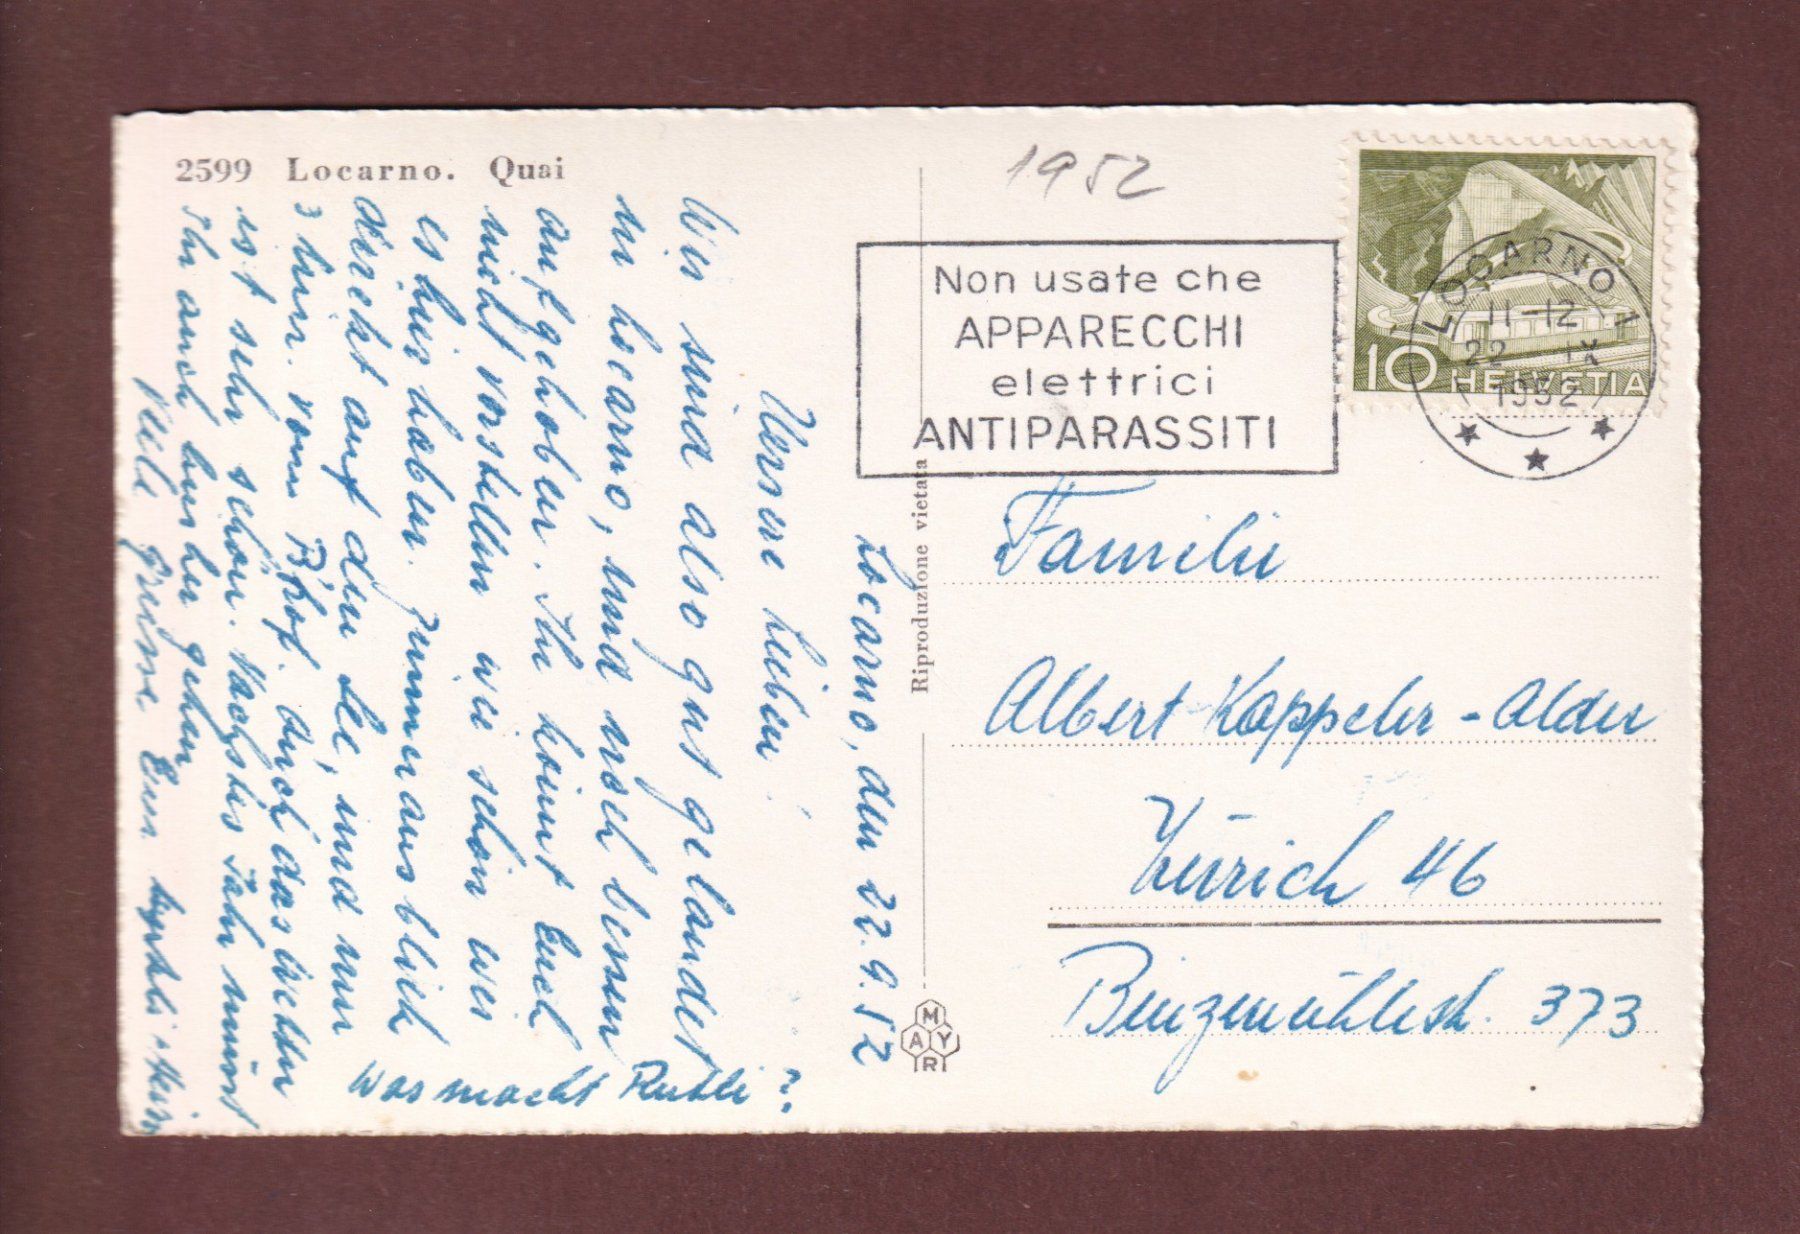 2599 Locarno. Quai
1952
Non usate che
APPARECCHI
elettrici
ANTIPARASSITI
LOCARNO 1
11-12
22 IX
1952
10 HELVETIA
Locarno, den 22.9.52
Meine Lieben
Wir sind also gut gelandet
in Locarno, sind noch besser
aufgehoben. Ihr könnt Euch
nicht vorstellen wie schön wir
es hier haben. Zimmerausblick
direkt auf den See, und nur
3 Min. vom Bhof. Auch das Wetter
ist sehr schön. Nächstes Jahr müsst
Ihr auch hierher gehen
Viele Grüsse Eure
Was macht Ruthli?
Riproduzione vietata
MAYR
Familie
Albert Kappeler-Alder
Zürich 46
Binzmühlestr. 373